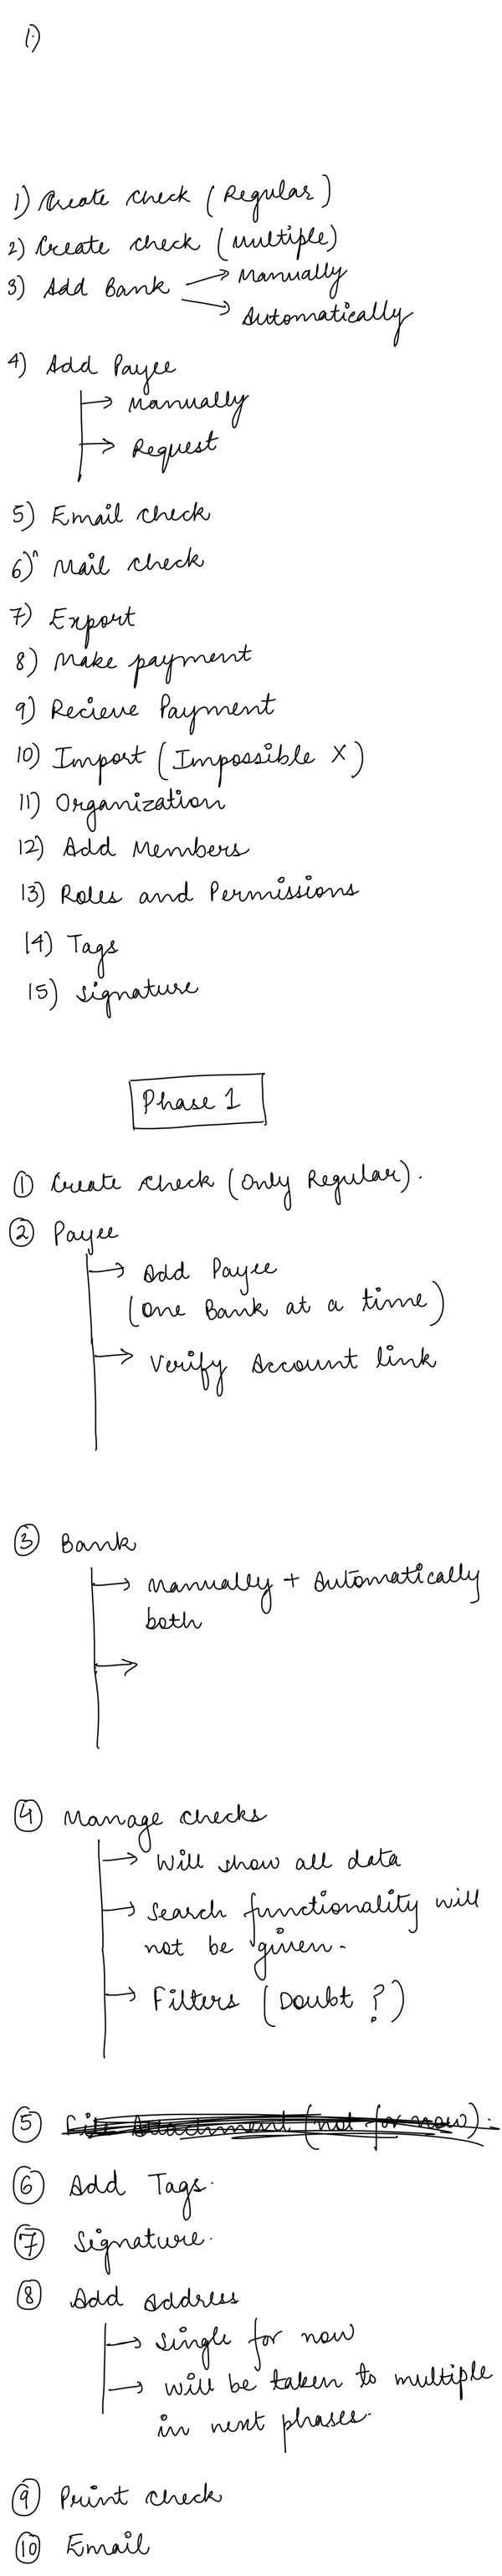 1)
1) Create check (Regular)
2) Create check (Multiple)
3) Add Bank → Manually
→ Automatically
4) Add Payee
→ Manually
→ Request
5) Email check
6) Mail check
7) Export
8) Make payment
9) Recieve Payment
10) Import (Impossible X)
11) Organization
12) Add Members
13) Roles and Permissions
14) Tags
15) Signature
Phase 1
① Create check (Only Regular).
② Payee
→ Add Payee
(One Bank at a time)
→ Verify Account link
③ Bank
→ Manually + Automatically
both
→
④ Manage checks
→ Will show all data
→ Search functionality will
not be given.
→ Filters (Doubt ?)
⑤ File Attachment (not for now).
⑥ Add Tags.
⑦ Signature.
⑧ Add Address
→ Single for now
→ will be taken to multiple
in next phases.
⑨ Print check
⑩ Email